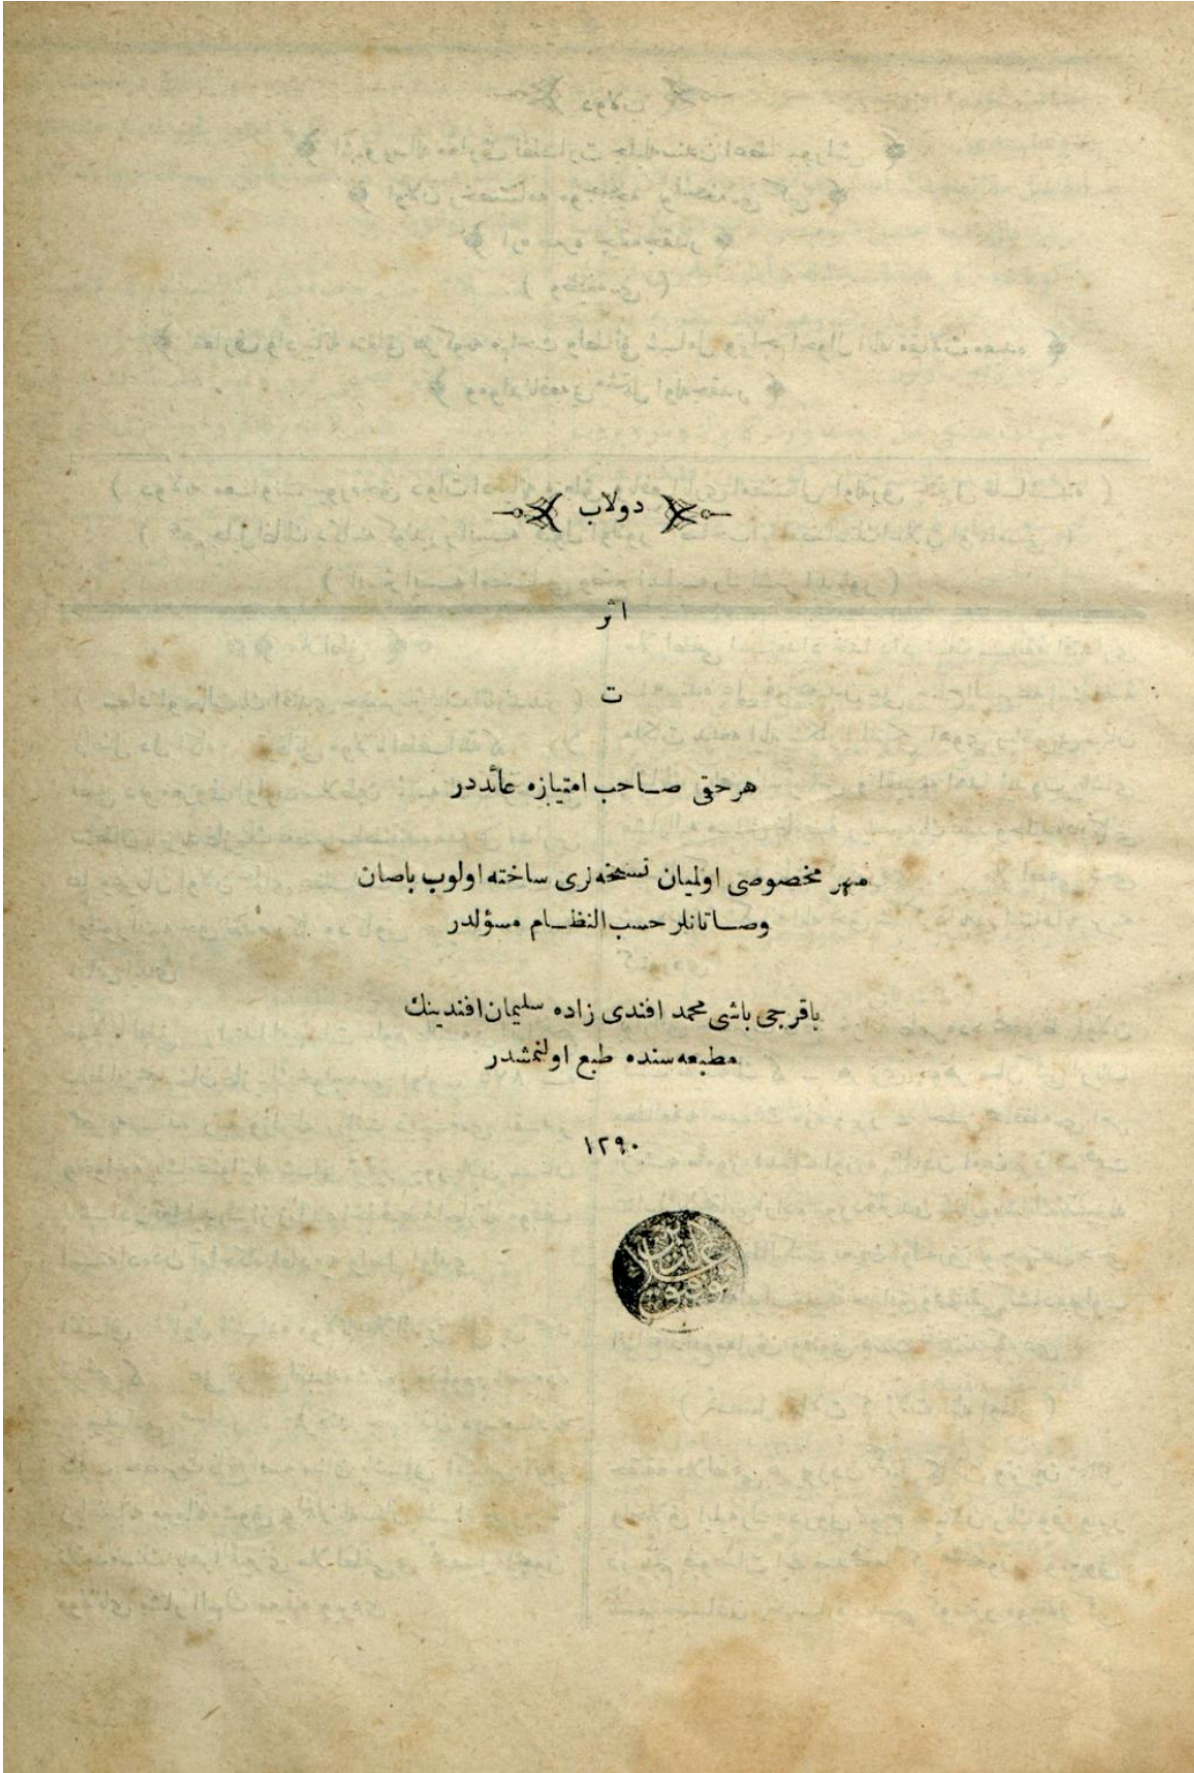 دولاب
اثر
ت
هر حق صاحب امتیازه عائددر
مهر مخصوصی اولمیان نسخه‌لری ساخته اولوب باصان
وصاتانلر حسب النظام مسؤلدر
باقرجی باشی محمد افندی زاده سلیمان افندینك
مطبعه سنده طبع اولنمشدر
١٢٩٠